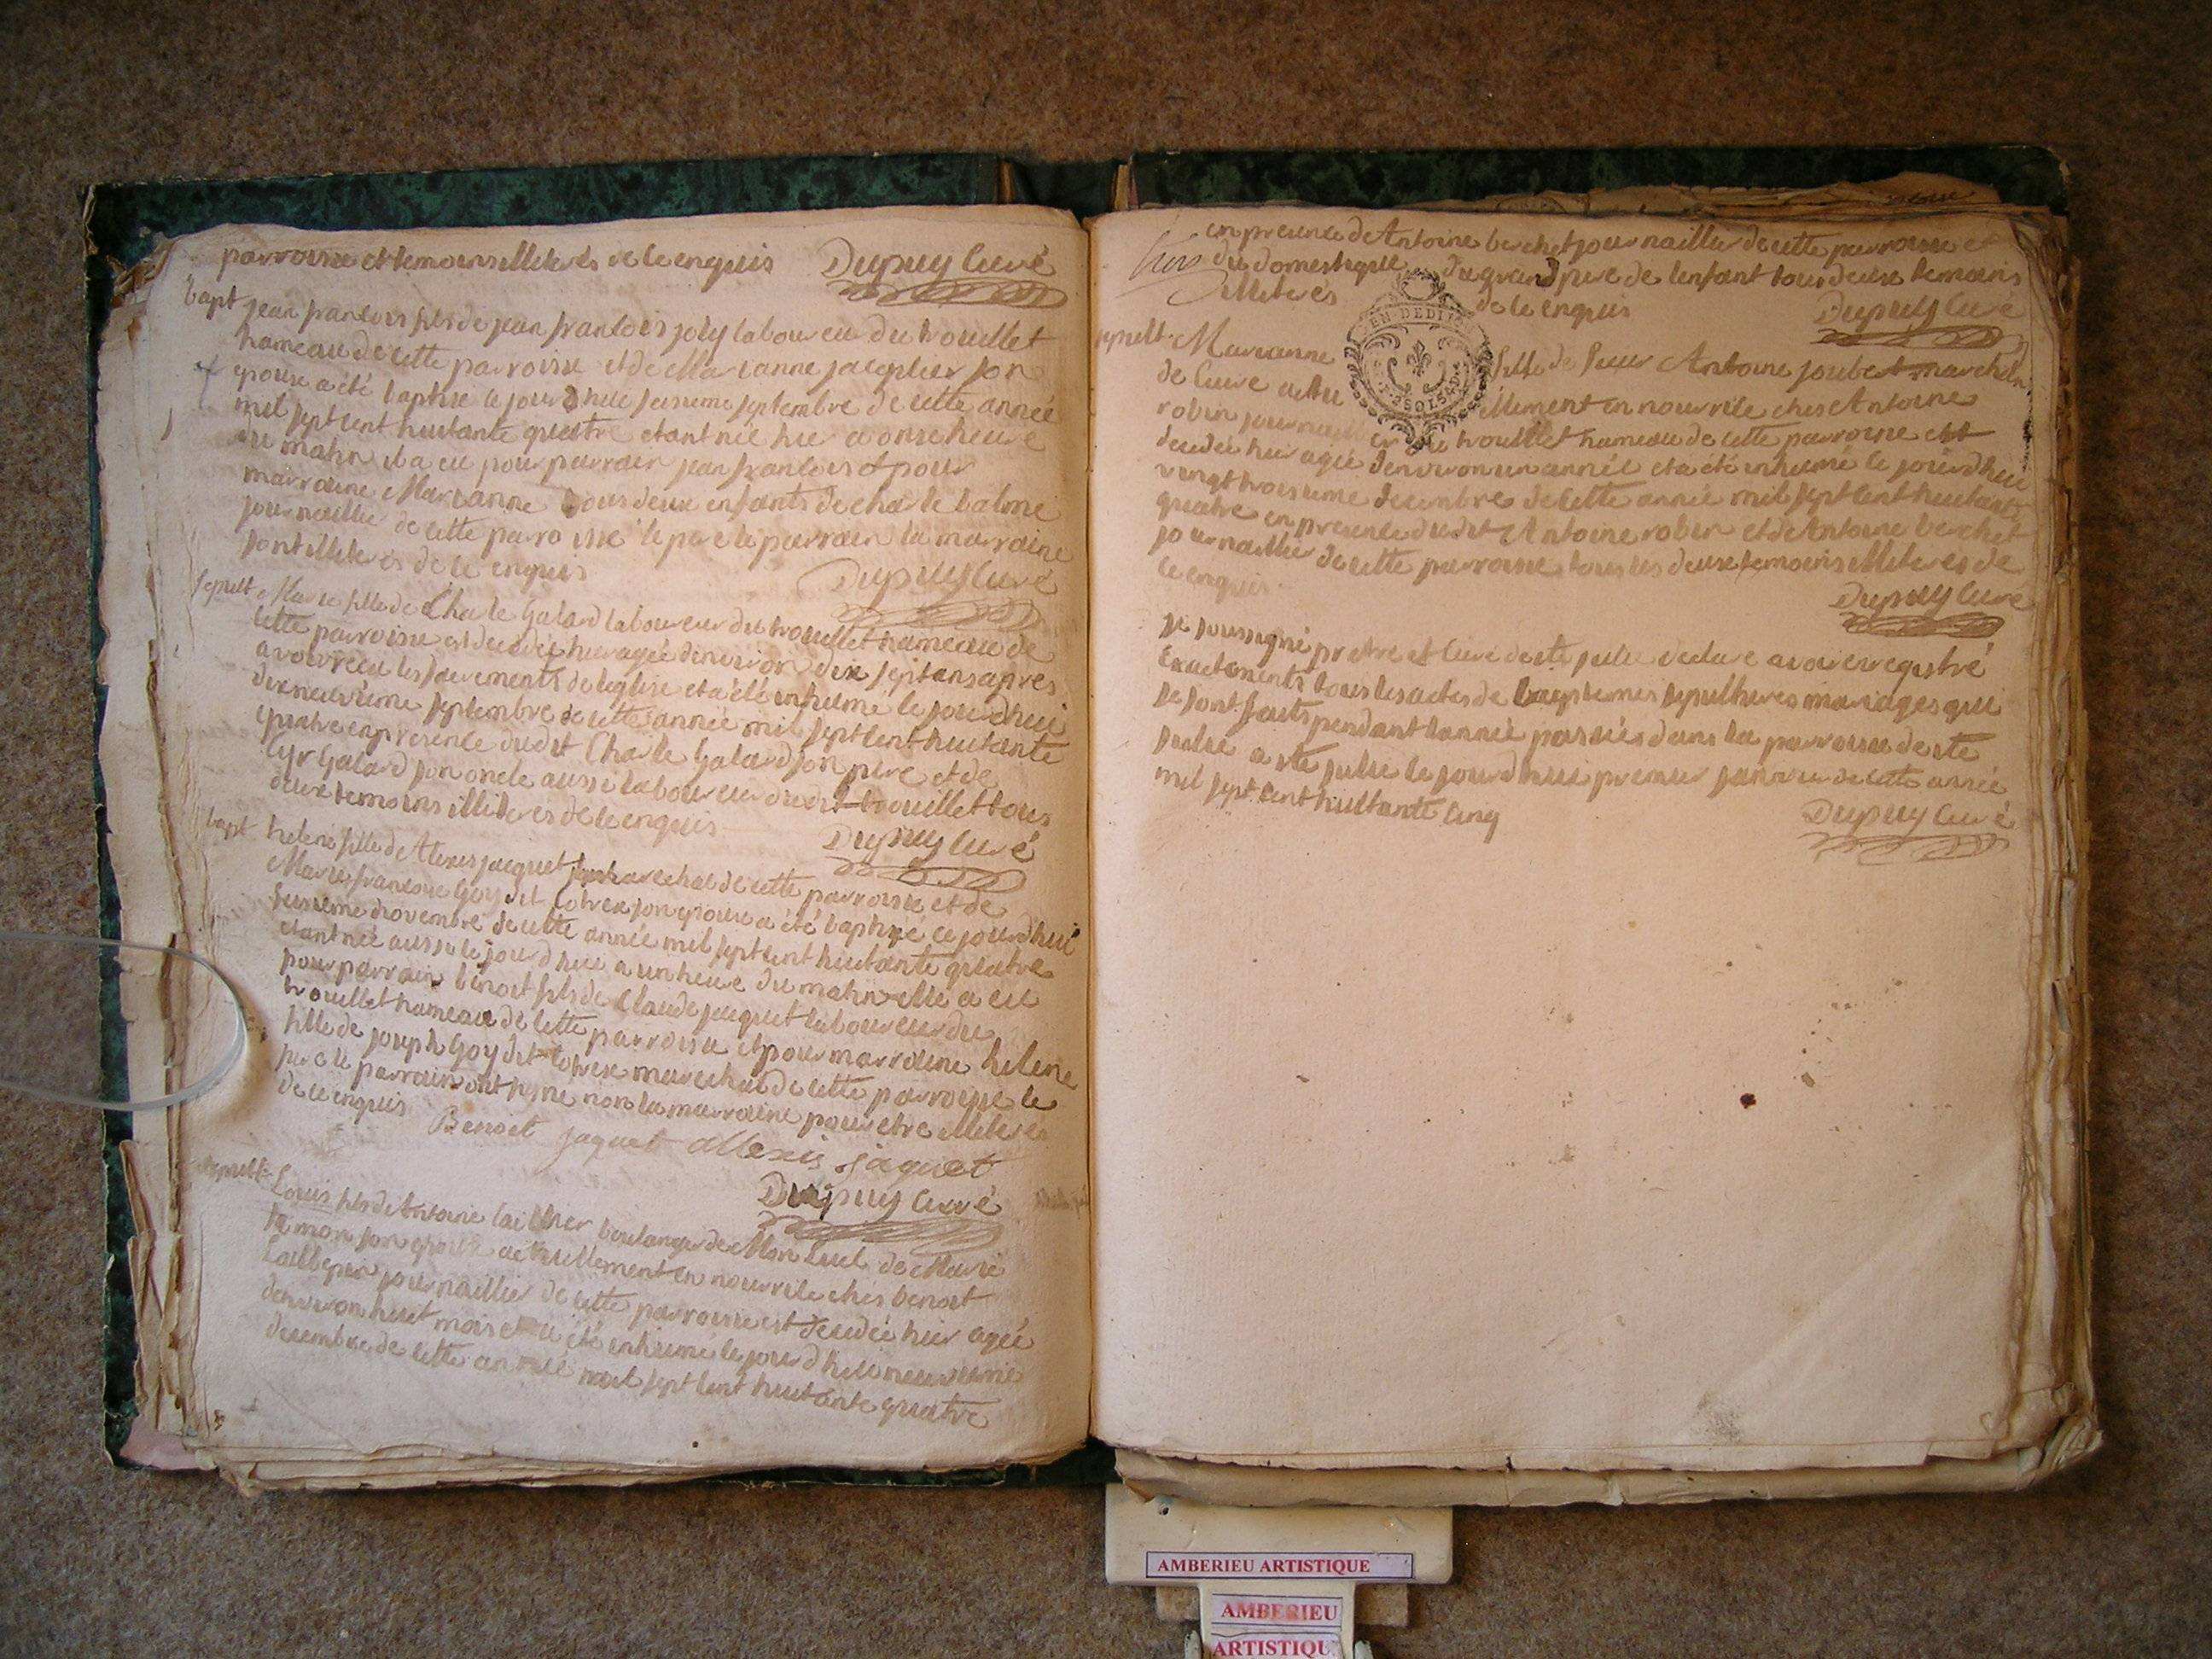 parroisse et temoins illiteres de ce enquis Dupuy Curé
bapt jean francois fils de jean francois joly laboureur du trouillet
hameau de cette parroisse et de Marianne jacquier son
epouse a été baptisé ce jourd huit seisieme septembre de cette année
mil sept cent huitante quatre etant née hier a onse heure
du matin il a eu pour parrain jean francois et pour
marraine Marianne tous deux enfants de charle balme
journaillier de cette parroisse le pere le parrain la marraine
sont illiteres de ce enquis Dupuy Curé
sepult Marie fille de Charle Galard laboureur du trouillet hameau de
cette parroisse est decedée hier agée d'environ dix sept ans apres
avoir recu les sacrements de leglise et a été inhumé le jourd huit
dixneuvieme septembre de cette année mil sept cent huitante
quatre en presence dudit Charle Galard son pere et de
Cyr Galard son oncle aussi laboureur dudit trouillet tous
deux temoins illiteres de ce enquis Dupuy Curé
bapt helene fille d'Alexis jacquet marechal de cette parroisse et de
Marie francoise Goy dit son epouse a été baptisé ce jourd huit
seisieme novembre de cette année mil sept cent huitante quatre
etant née aussi le jourd huit a un heure du matin elle a eu
pour parrain benoit fils de Claude jacquet laboureur du
trouillet hameau de cette parroisse et pour marraine helene
fille de joseph Goy dit marechal de cette parroisse le
pere le parrain ont signe non la marraine pour etre illitere
de ce enquis
Benoit jaquet allexis jaquet
Dupuy Curé
sepult Louis fils de Antoine boulanger de Mon Luel de Marie
son epouse actuellement en nourrile ches benoit
journaillier de cette parroisse est decedée hier agée
d'environ huit mois et a été inhumé le jourd huit neuvieme
decembre de cette année mil sept cent huitante quatre
en presence de Antoine berchet journaillier de cette parroisse et
du domestique du grand pere de lenfant tous deux temoins
illiteres de ce enquis Dupuy Curé
sepult Marianne fille de sieur Antoine joubert marchand
de Cuire actuellement en nourrile ches Antoine
robin journaillier du trouillet hameau de cette parroisse est
decedée hier agée d'environ un année et a été inhumé le jourd huit
vingt troisieme decembre de cette année mil sept cent huitante
quatre en presence dudit Antoine robin et de Antoine berchet
journaillier de cette parroisse tous les deux temoins illiteres de
ce enquis
Dupuy Curé
je soussigné pretre et Curé de ste julie declare avoir enregistré
Exactements tous les actes de baptemes sepultures mariages qui
se sont faits pendant lannée passées dans la parroisse de ste
julie a ste julie le jourd huit premier janvier de cette année
mil sept cent huitante Cinq Dupuy Curé
AMBERIEU ARTISTIQUE
AMBERIEU
ARTISTIQU